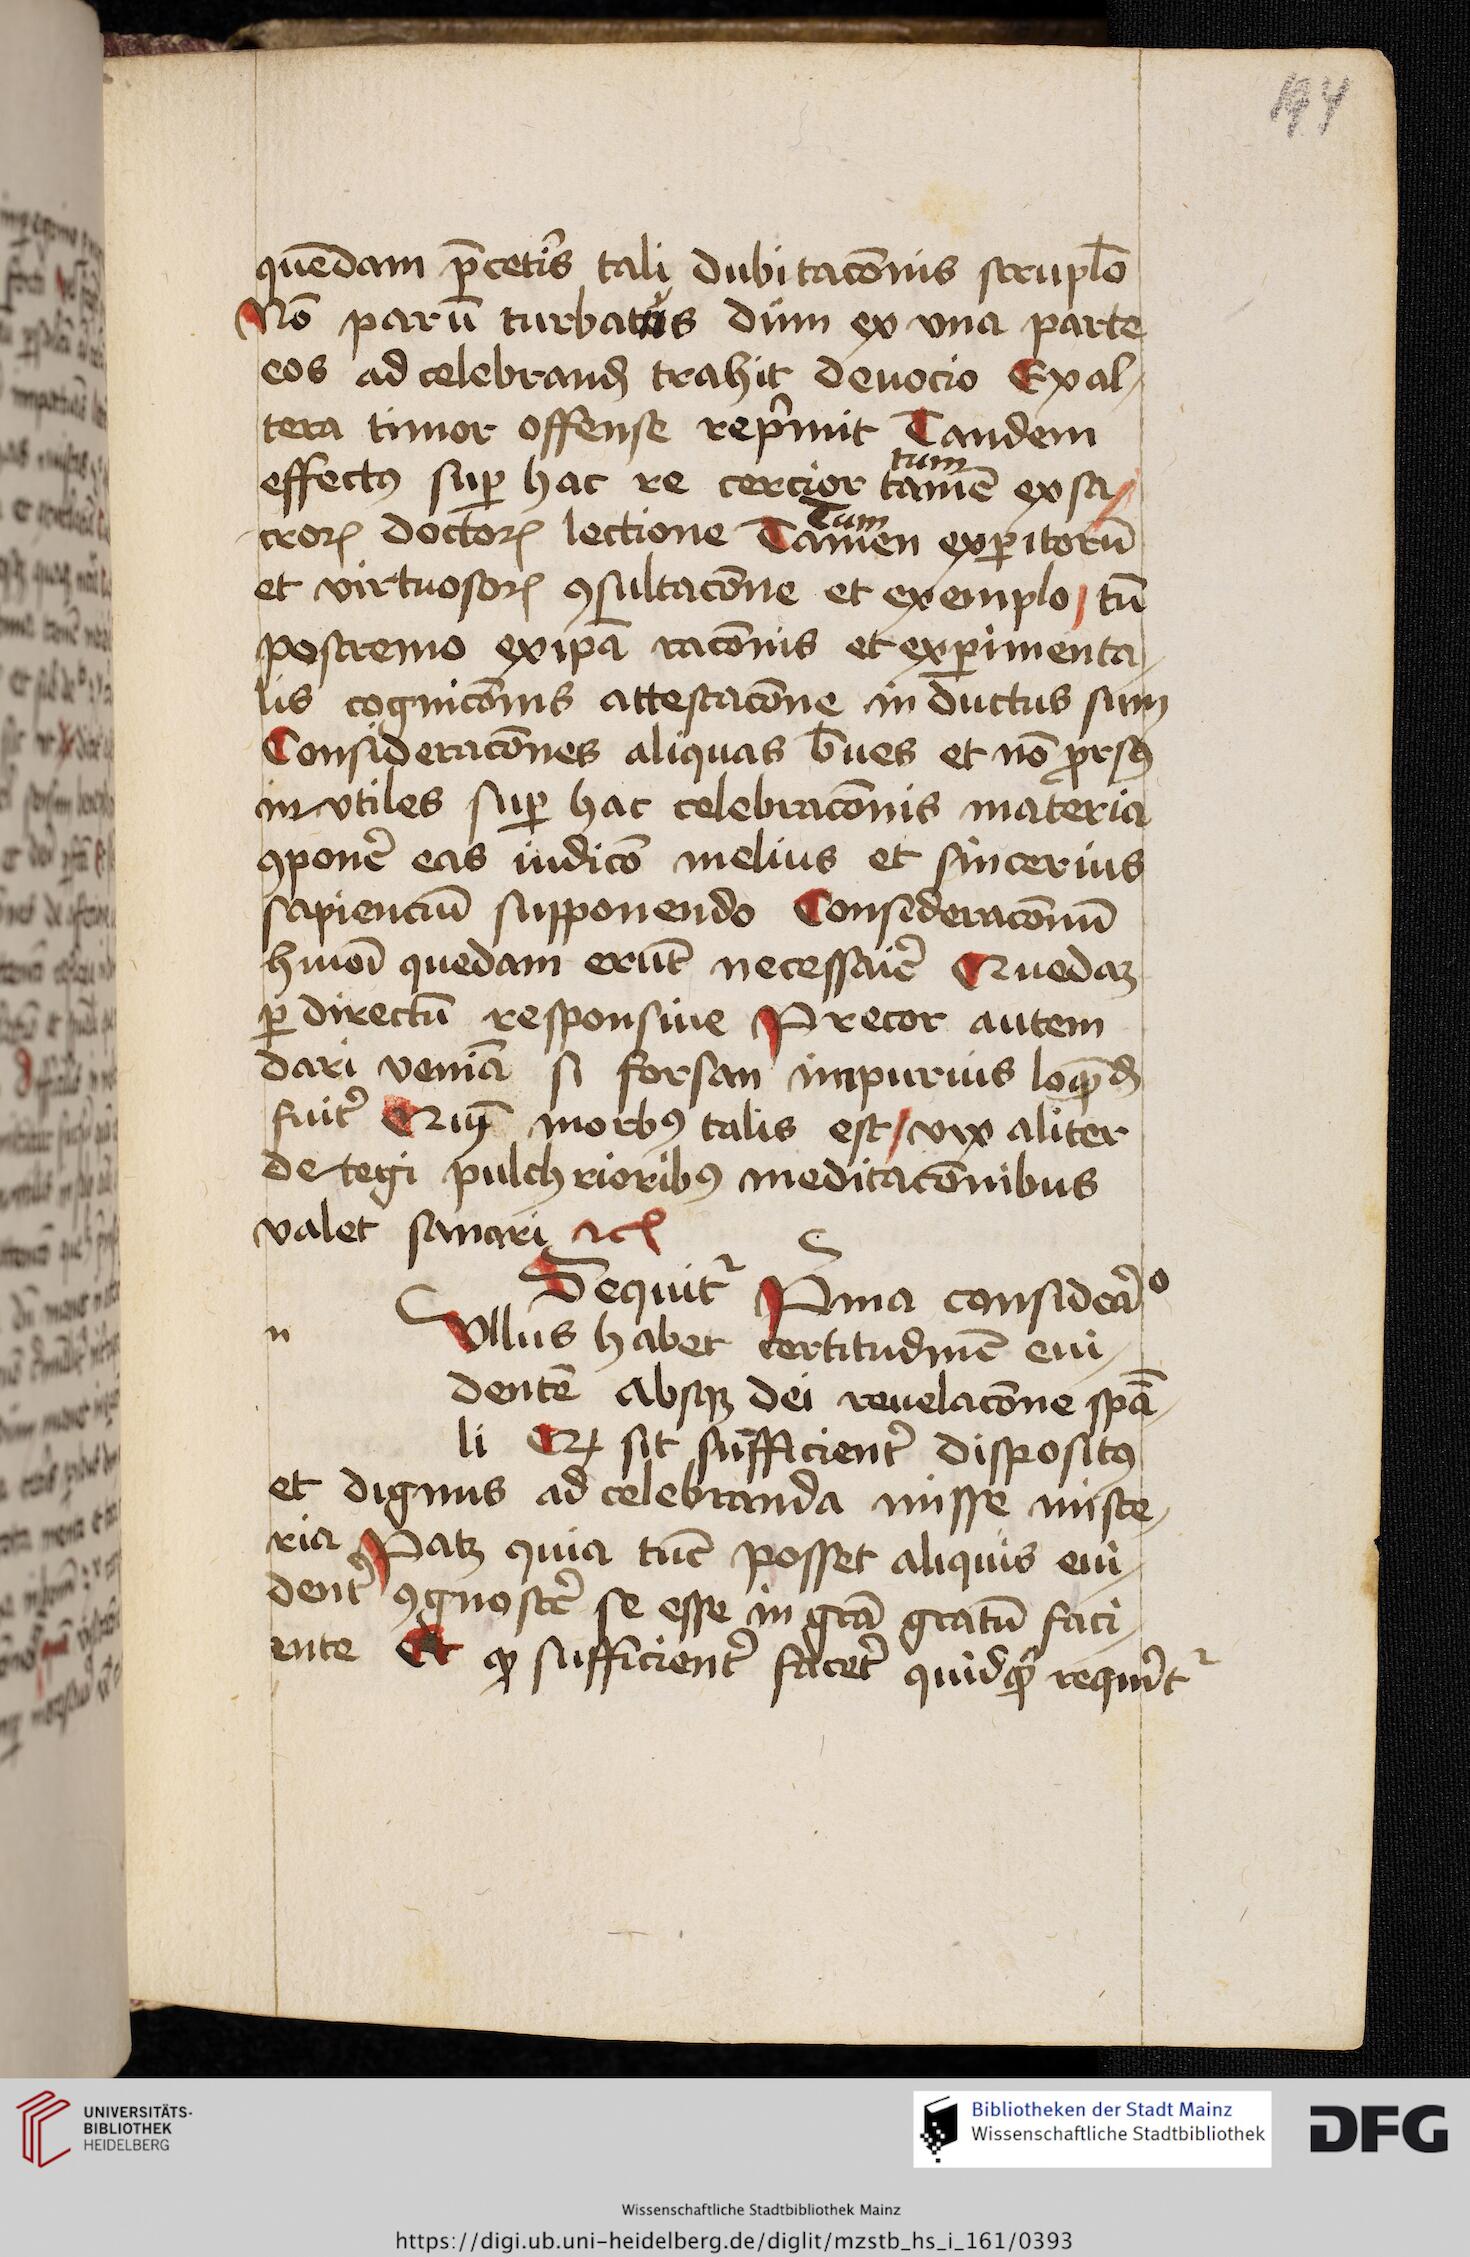 194
quēdam p̄ceti᷒s tali dubitacōnis scrupl̄o
Nō parū turbatus dum ex vna parte
eos ad celebrand̄ trahit deuocio Ex al-
tera timor offense rep̃mit Tandem
tum
effectꝰ suꝑ hac re cercior tamē ex sa/
Tum
croꝝ doctoꝝ lectione Tamen exꝑitorū
et virtuosoꝝ ꝯsultacōne et exemplo / tū
postremo ex ipā racōnis et exꝑimenta-
lis cognicōnis attestacōne in ductus sum
Consideracōnes aliquas b̄ues et nō ꝓrsꝰ
in vtiles suꝑ hac celebracōnis materia
ꝯponē eas iudicō melius et sincerius
sapienciū supponendo Consideracōnū
hmōi quedam erūt necessaīē Quedaꝫ
ꝑ directū responsiue Precor autem
dari veniā si forsan impurius loquēd̄
fuit᷒ Qm̄ morbꝰ talis est / vix aliter
de tegi pulchrioribꝰ meditacōnibus
valet sanari ⁊cꝭ
Sequit᷒ P̃ma consideraᵒ
n
Vllus habet certitudinē eui-
dentē absqꝫ dei reuelacōne spā-
li Qꝙ sit sufficient᷒ dispositꝰ
et dignus ad celebranda misse miste-
ria Patꝫ quia tūc posset aliquis eui-
dent᷒ ꝯgnoscē se esse in grā gratū faci-
ente Et ꝙ sufficient᷒ facet᷒ quidqͥd requirit᷒
UNIVERSITÄTS-
BIBLIOTHEK
HEIDELBERG
Bibliotheken der Stadt Mainz
Wissenschaftliche Stadtbibliothek
DFG
Wissenschaftliche Stadtbibliothek Mainz
https://digi.ub.uni-heidelberg.de/diglit/mzstb_hs_i_161/0393